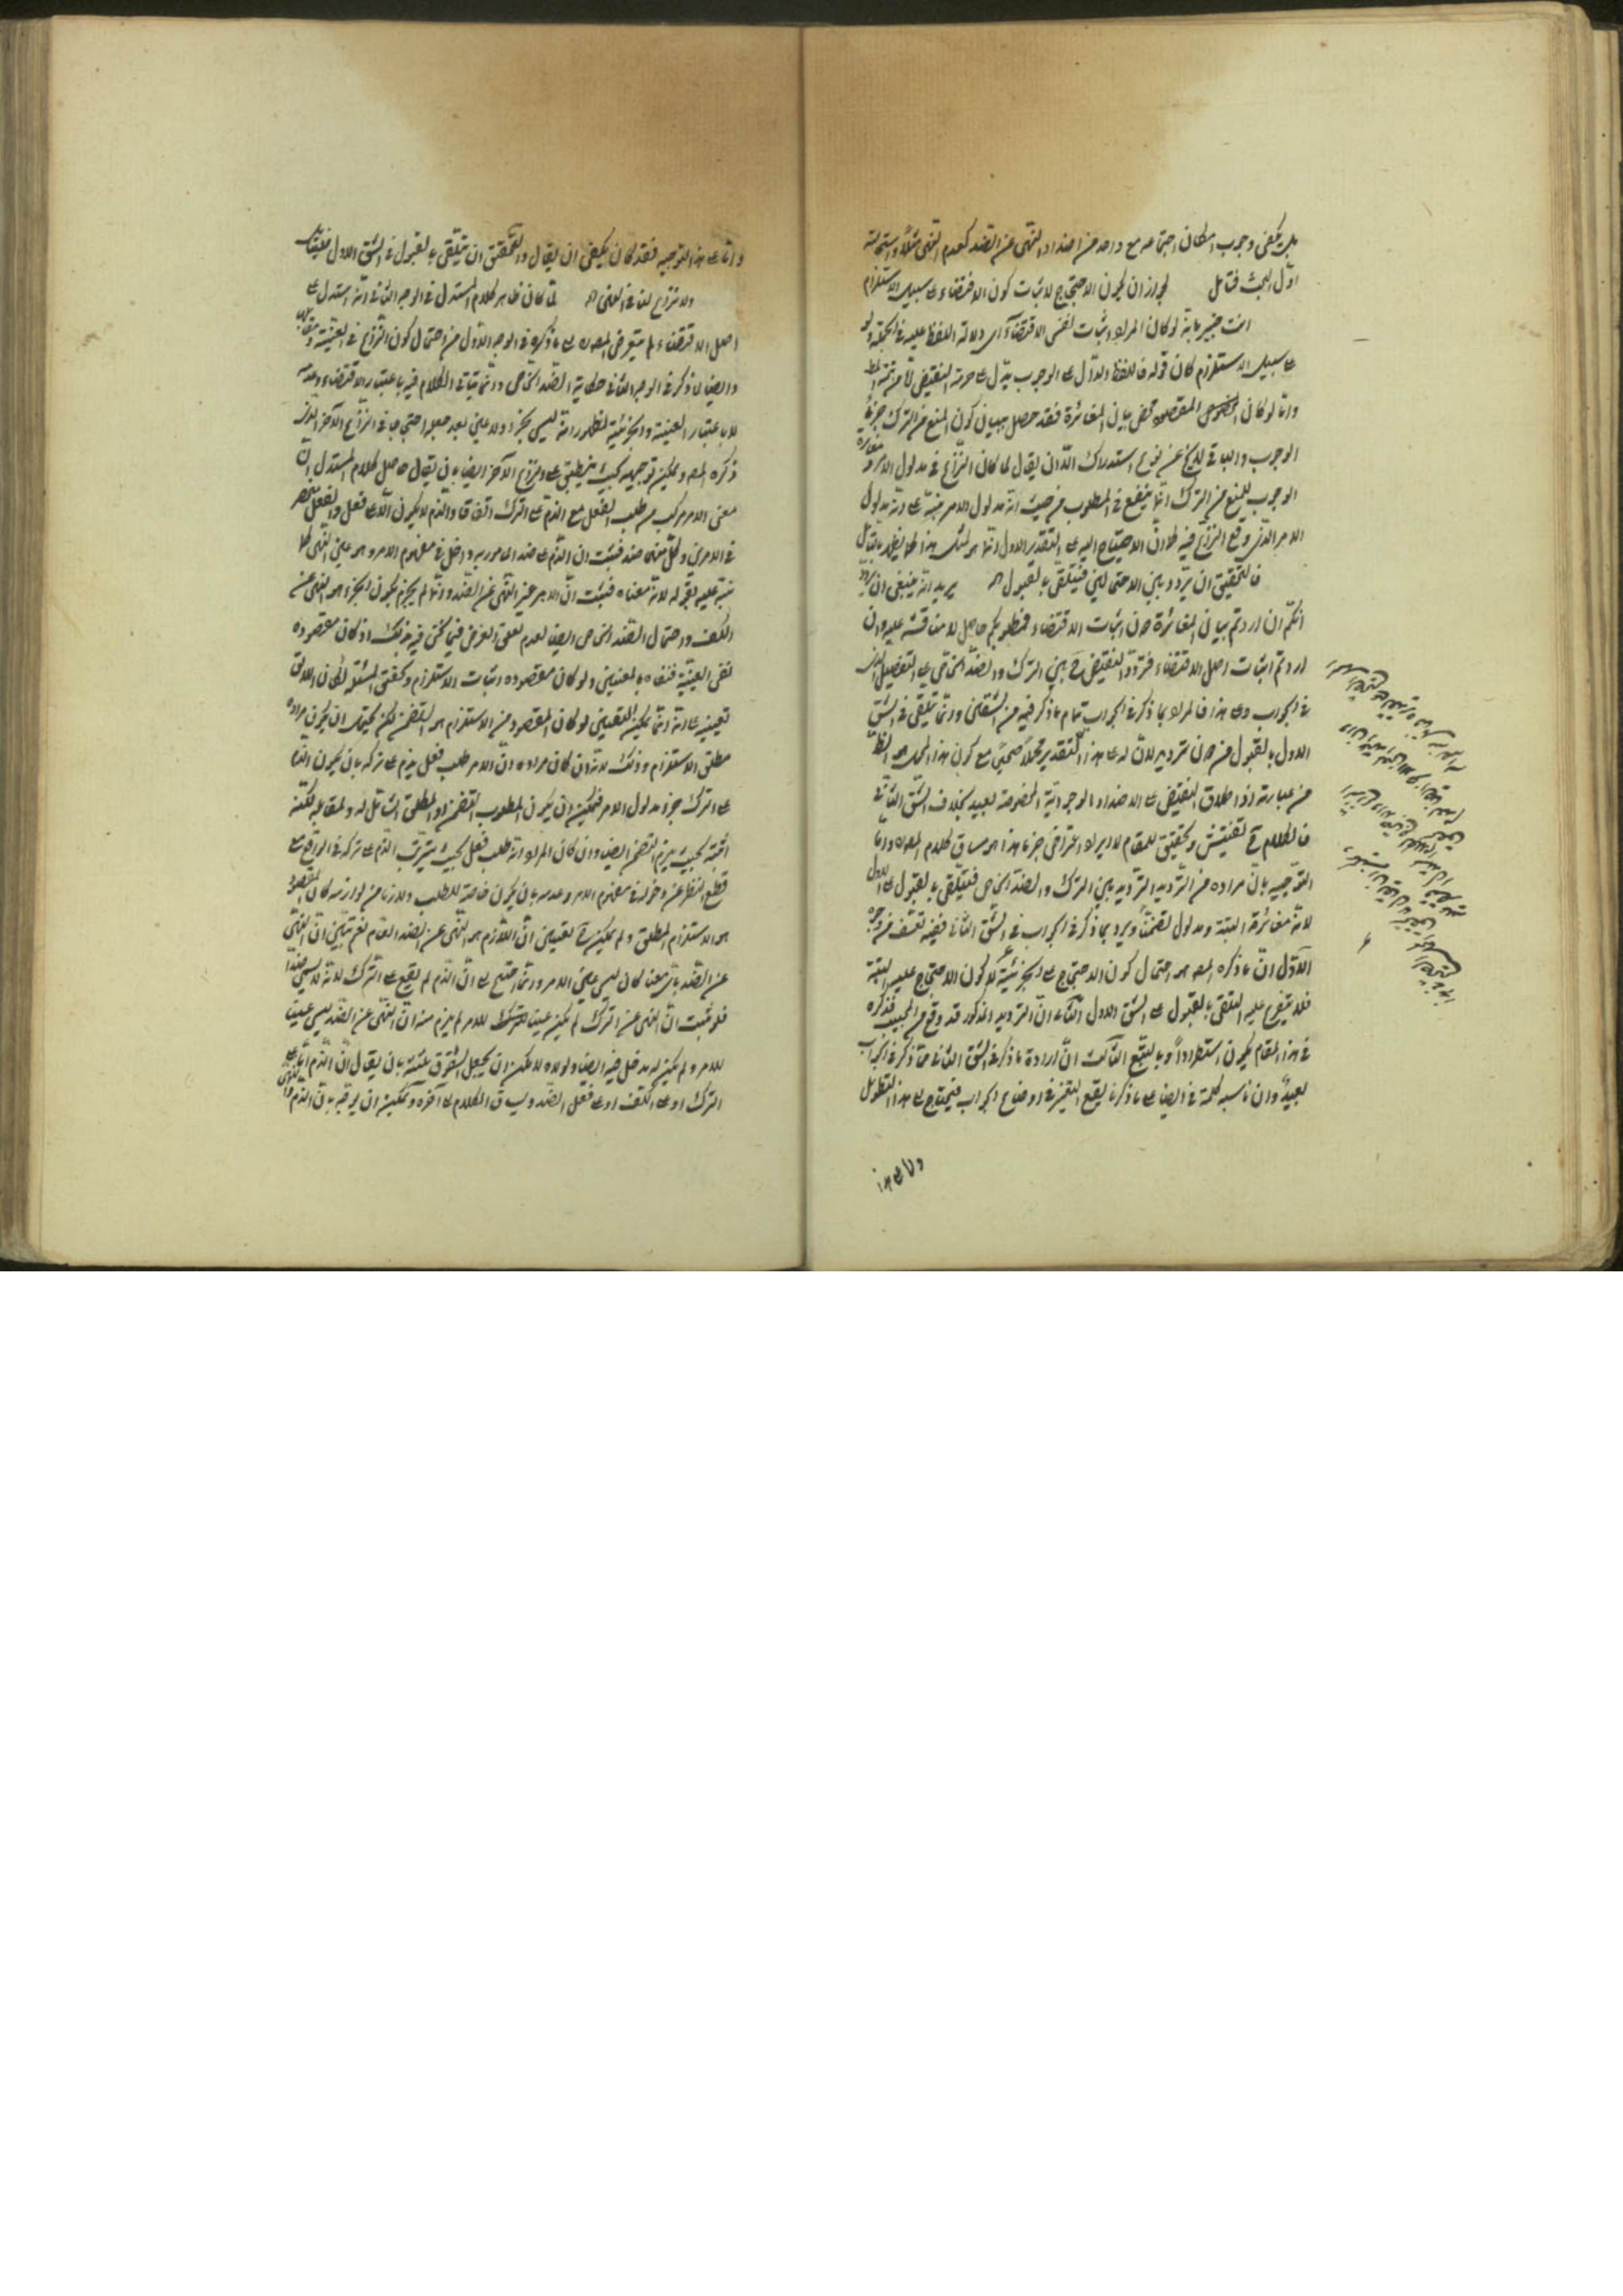 بل يكفى وجوب امكان اجتماعه مع واحد من اضداد النهى عن الضد كعدم النهى مثلا واستحالته
اول البحث فتامل لجواز ان يكون الاحتجاج لاثبات كون الاقتضاء على سبيل الاستلزام
انت خبير بانه لو كان المراد اثبات نفس الاقتضاء اى دلالة اللفظ عليه فى الجملة ولو
على سبيل الاستلزام كان قوله فاللفظ الدال على الوجوب يدل على حرمة النقيض
واما لو كان المقصود محض بيان المغائرة فقد حصل ببيان كون المنع من الترك جزء
الوجوب والباقى لا يخ عن نوع استدراك الا ان يقال لما كان النزاع فى مدلول الامر و
الوجوب للمنع من الترك انما ينفع فى المطلوب من حيث انه مدلول الامر نبه على انه مدلول
الامر الذى وقع النزاع فيه كما ان الاحتياج اليه على التقدير الاول انما هو لذلك هذا كما يظهر بالتامل
فالتحقيق ان يردد بين الاحتمالين فيتلقى بالقبول اه يريد انه ينبغى ان يردد
انكم ان اردتم بيان المغائرة دون اثبات الاقتضاء فمطلوبكم حاصل لا مناقشة عليه وان
اردتم اثبات اصل الاقتضاء فتردد النقيض ح بين الترك والضد الخاص على التفصيل
فى الجواب وعلى هذا فالمراد بما ذكر فى الجواب تمام ما ذكر فيه من الشقين وانما يتلقى فى الشق
الاول بالقبول من دون ترديد لان له على هذا التقدير محملا صحيحا مع كون هذا المحمل هو الظ
من عبارته اذ اطلاق النقيض على الاضداد الوجودية المخصوصة بعيد بخلاف الشق الثانى
فالكلام ح تفتيش وتحقيق للمقام لا ايراد واعتراض جزما هذا هو مساق كلام المص واما
التوجيه بان مراده من الترديد الترديد بين الترك والضد الخاص فيتلقى بالقبول على الاول
لانه مغائرة البتة ومدلول تضمنا ويرد بما ذكر فى الجواب فى الشق الثانى ففيه تعسف من وجوه
الاول ان ما ذكره المص هو احتمال كون الاحتجاج على الجزئية لا كون الاحتجاج عليه البتة
فلا يتفرع عليه التلقى بالقبول على الشق الاول الثانى ان الترديد المذكور قد وقع من المجيب فذكره
فى هذا المقام يكون استطرادا وبالتبع الثالث ان ارادة ما ذكر فى الشق الثانى مما ذكر فى الجواب
بعيد وان ناسبه كلمة فى ايضا على ما ذكرنا يقع التغيير فى اوضاع الجواب فيحتاج على هذا التطويل
واما على هذا
واما على هذا التوجيه فقد كان يكفى ان يقال والتحقيق ان يتلقى بالقبول فى الشق الاول فيقال
ولا نزاع لنا فى المعنى اه لما كان ظاهر كلام المستدل فى الوجه الثانى انه استدل على
اصل الاقتضاء لم يتعرض المص له على ما ذكره فى الوجه الاول من احتمال كون النزاع فى العينية
وايضا لما ذكر فى الوجه الثانى حكاية الضد الخاص وانما يتاتى الكلام فيه باعتبار الاقتضاء وعدمه
لا باعتبار العينية والجزئية لظهور انه ليس بجزء ولا عين بعد جعله احتجاجا فى النزاع الآخر الذى
ذكره المص ويمكن توجيهه بحيث ينطبق على النزاع الآخر ايضا بان يقال حاصل كلام المستدل ان
معنى الامر مركب من طلب الفعل مع الذم على الترك اتفاقا والذم لا يكون الا على فعل والفعل منحصر
فى الامرين وكل منهما ضد فثبت ان الذم على ضد المامور به داخل فى مفهوم الامر وهو عين النهى كما
نبه عليه بقوله لانه معناه فثبت ان الامر عين النهى عن الضد وانما لم يجزم بكون الجزء هو النهى عن
الكف واحتمال الضد الخاص ايضا لعدم تعلق الغرض فيما نحن فيه بذلك اذ كان مقصوده
نفى العينية فنفاه بالمعنيين ولو كان مقصوده اثبات الاستلزام وتحقق المسئلة لكان اللائق
تعيينه على انه انما يمكن التعيين لو كان المقصود من الاستلزام هو التضمن لكن يحتمل ان يكون مراده
مطلق الاستلزام وذلك لانه ان كان مراده ان الامر طلب فعل يذم على تركه بان يكون الذم
على الترك جزء مدلول الامر فيمكن ان يكون المطلوب التضمن او المطلق الشامل له والمقابلة لكنه
اثبته بحيث يلزم التضمن ايضا وان كان المراد انه طلب فعل بحيث يترتب الذم على تركه فى الواقع مع
قطع النظر عن دخوله فى مفهوم الامر وعدمه بان يكون خاصة للطلب ولازما من لوازمه كان المقصود
هو الاستلزام المطلق ولم يمكن ح تعيين ان اللازم هو النهى عن الضد العام نعم يتبين ان النهى
عن الضد باى معنى كان ليس عين الامر وانما احتج على ان الذم لم يقع على الترك لانه ليس ضدا
فلو ثبت ان النهى عن الترك لم يكن عينا للامر لم يلزم منه ان النهى عن الضد ليس عينا
للامر ولم يكن له مدخل فيه ايضا ولولاه لامكن ان يجعل الشقوق ثلثة بان يقال ان الذم اما على
الترك او على الكف او على فعل الضد ويساق الكلام الى آخره ويمكن ان يوجه بان الذم